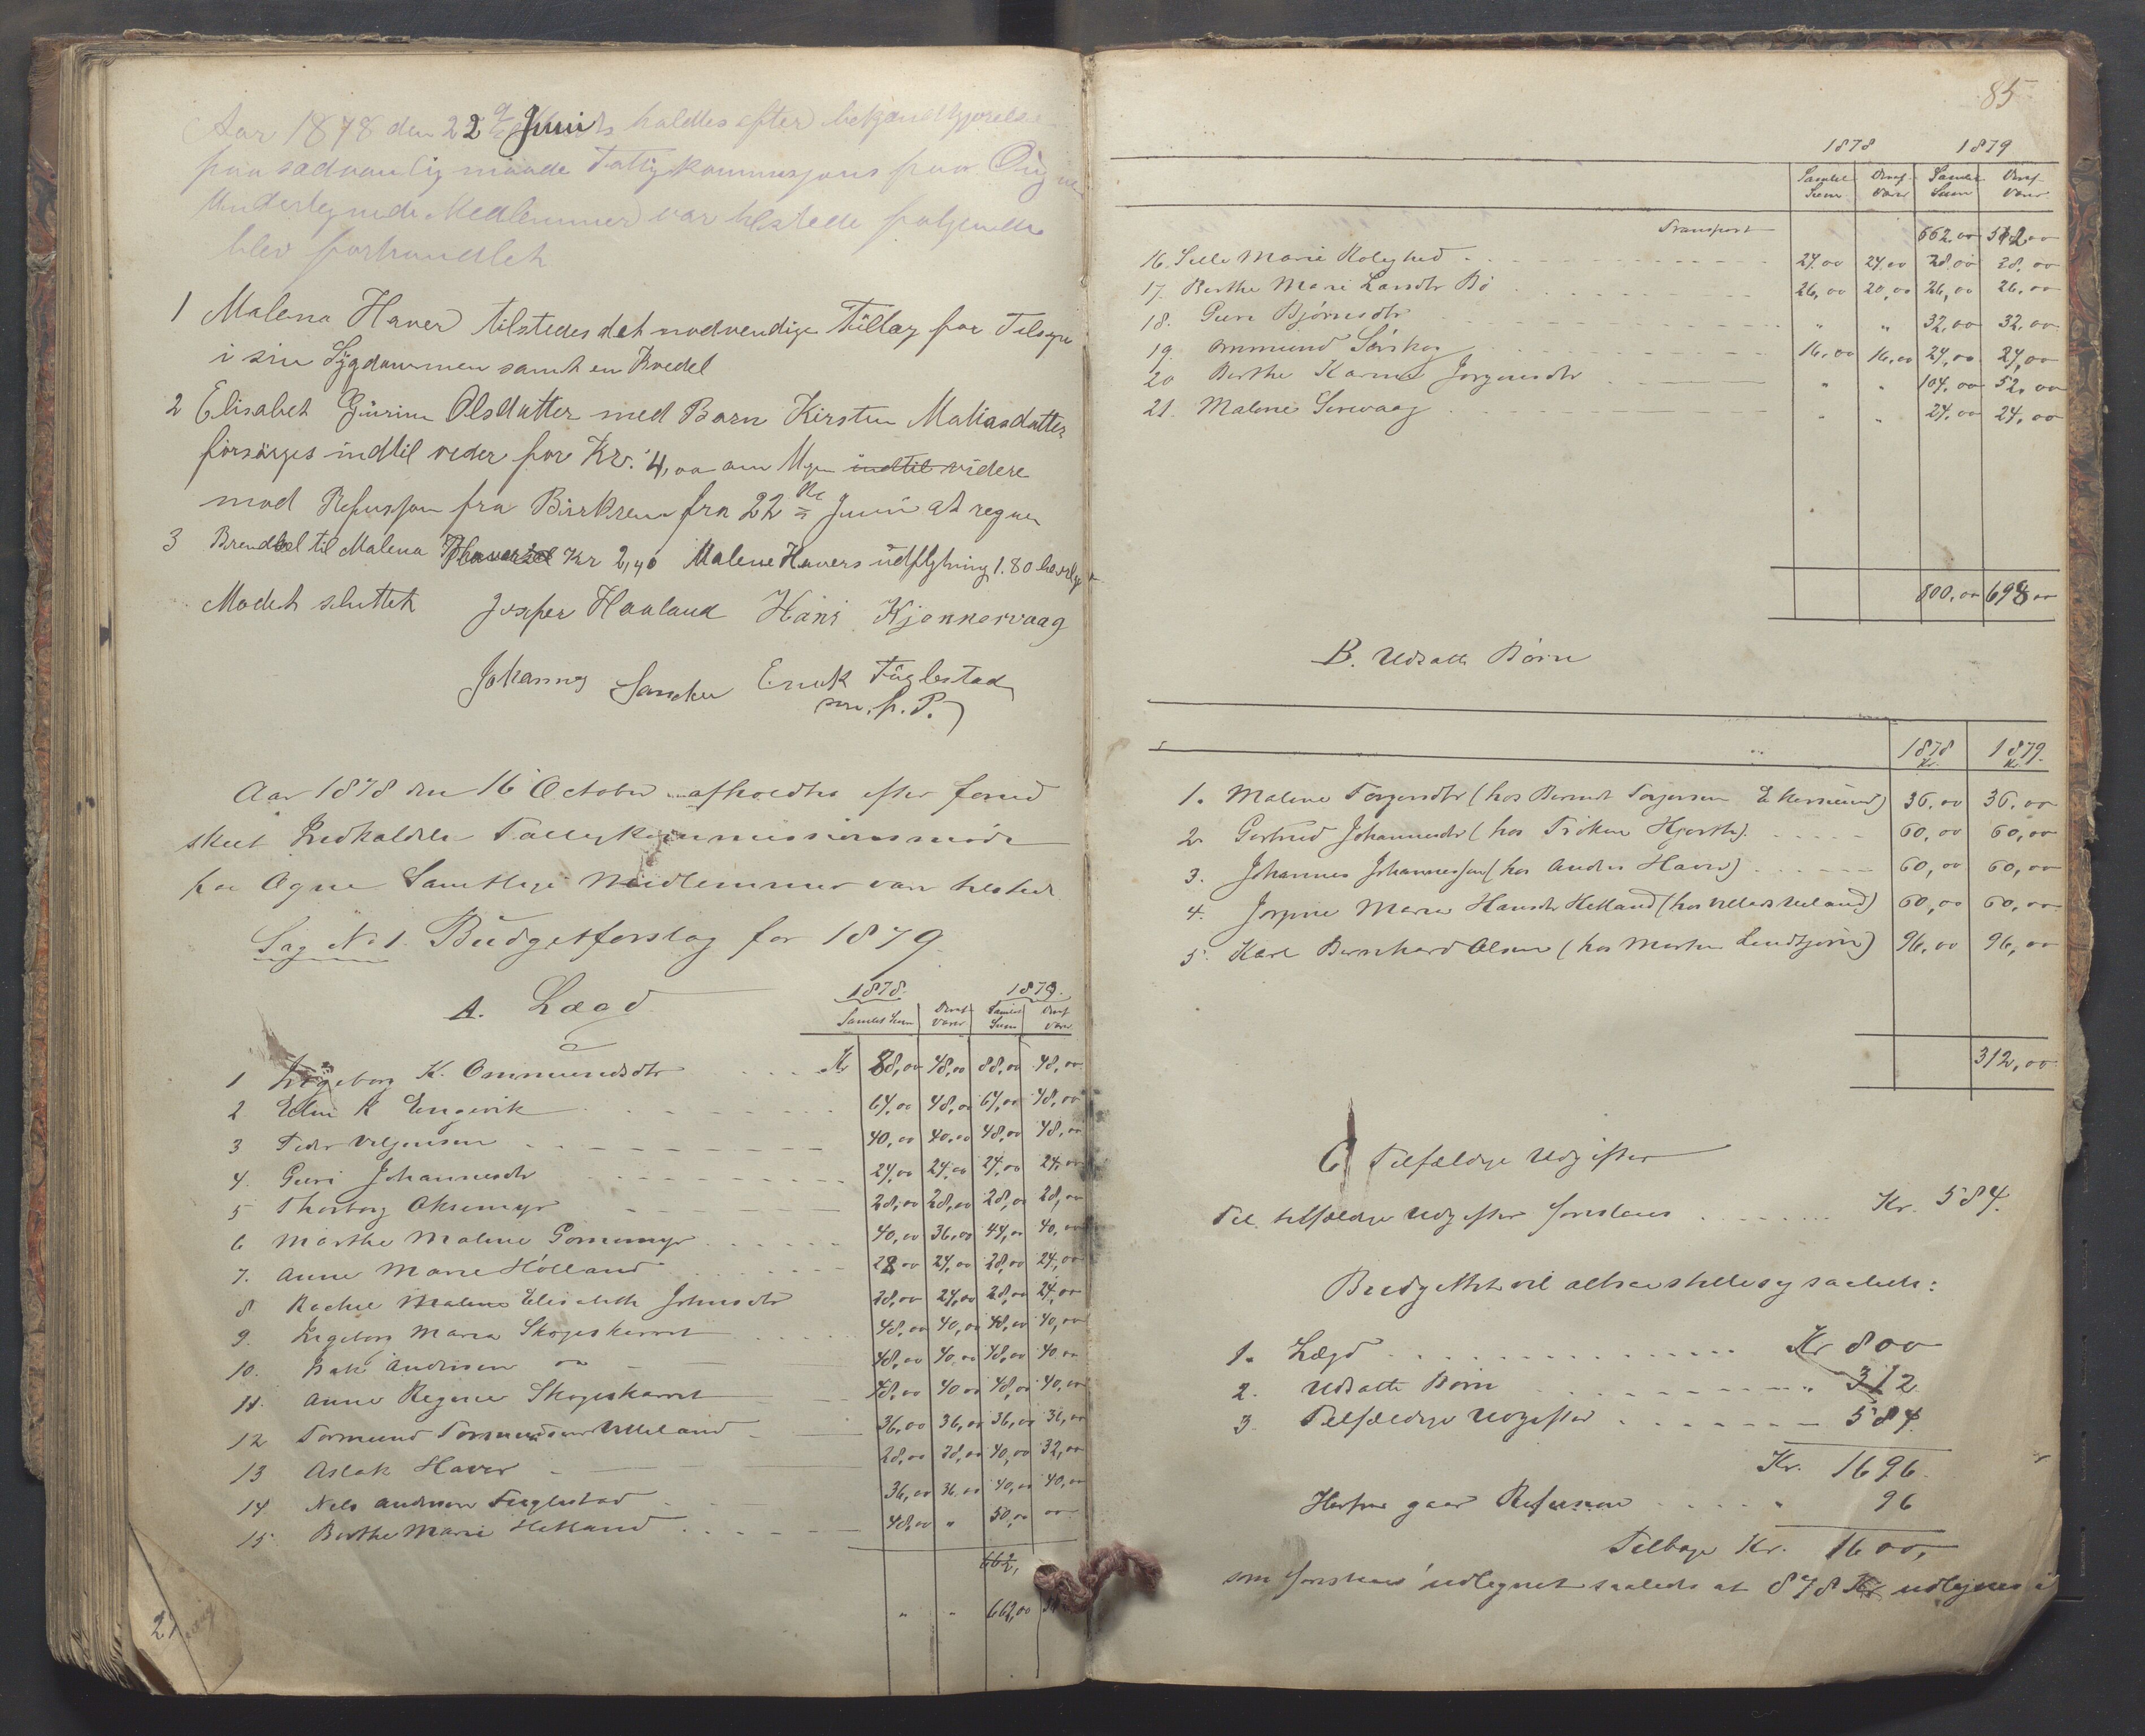 Aar 1878 den 22 Juni holdtes efter bekjendtgjørelse
paa sædvanlig maade Fattigkommisjons paa Ougne
Undertegnede Medlemmer var tilstede følgende
blev forhandlet
1 Malena Haver tilstedes det nødvendige Tillæg for Tilsyn
i sin Sÿgdommen samt en Kvedel
2 Elisabet Gurine Olsdatter med Barn Kirsten Matiasdatter
forsørges indtil veder for Kr. 4,00 om Ugen indtil videre
mod Refusjon fra Birkrem fra 22de Juni at regne
3 Brendsel til Malena Kr 2,40 Malene Havers udflytning 1.80
Mødet sluttet Josper Haaland Hans Kjønnorvaag
Johannes Enok Fuglestad
Aar 1878 den 16 October afholdtes efter forud
skeet Indkaldelse Fattigkommissionsmøde
paa Ogne Samtlige Medlemmer vare tilstede
Sag No 1. Budgetforslag for 1879.
A. Lægd
1878. 1879.
Samlet Sum Deraf Varer Samlet Sum Deraf Varer
1 Ingeborg K. Ommundsdtr Kr 88,00 48,00 88,00 48,00
2 Elen K Eengevik 64,00 48,00 64,00 48,00
3 Peder 40,00 40,00 48,00 48,00
4. Guri Johannesdtr 24,00 24,00 24,00 24,00
5 Thorborg 28,00 28,00 28,00 28,00
6 Marthe Malene 40,00 36,00 44,00 40,00
7. Anne Marie Hölland 28,00 24,00 28,00 24,00
8 Rachel Malene Elisabeth Johnsdtr 28,00 24,00 28,00 24,00
9. Ingeborg Maria Skogeskarret 48,00 40,00 48,00 40,00
10. Andersen 48,00 40,00 48,00 40,00
11. Anne Regine Skogeskarret 48,00 40,00 48,00 40,00
12 Tormund 36,00 36,00 36,00 36,00
13 Aslak Haver 28,00 28,00 40,00 32,00
14 Nils Andersen Fuglestad 36,00 36,00 40,00 40,00
15. Berthe Marie Hetland 48,00 " 50,00
662,
" " 662,00
21
85
1878 1879
Samlet Sum Deraf Varer Samlet Sum Deraf Varer
Transport 662,00 512,00
16. Sille Marie 24,00 24,00 28,00 28,00
17. Berthe Marie Larsdtr Bö 26,00 20,00 26,00 26,00
18. Guri Bjørnsdtr " " 32,00 32,00
19. Ommund Sørskog 16,00 16,00 24,00 24,00
20 Berthe Karine Jørgensdtr " " 104,00 52,00
21. Malene Sirevaag " " 24,00 24,00
800,00 698,00
B. Udsatte Børn
1878 1879.
Kr. Kr.
1. Malene Torgersdtr (hos Berent Torgersen) 36,00 36,00
2. Gertrud Johannesdtr (hos) 60,00 60,00
3. Johannes Johannessen (hos Anders Haver) 60,00 60,00
4. Marie Hansdtr Hetland (hos) 60,00 60,00
5. Karl Bernhard Olsen (hos Morten Lindtjørn) 96,00 96,00
312,00
C Tilfældige Udgifter
Til tilfældige Udgifter foreslaaes Kr. 584.
Budgettet vil altsaa stille sig saaledes:
1. Lægd Kr 800
2. Udsatte Børn " 312
3. Tilfældige Udgifter 584
Kr. 1696.
Herfra gaar Refusion " 96
Tilbage Kr. 1600,
som foreslaaes udlignet saaledes at 878 Kr udlignes i